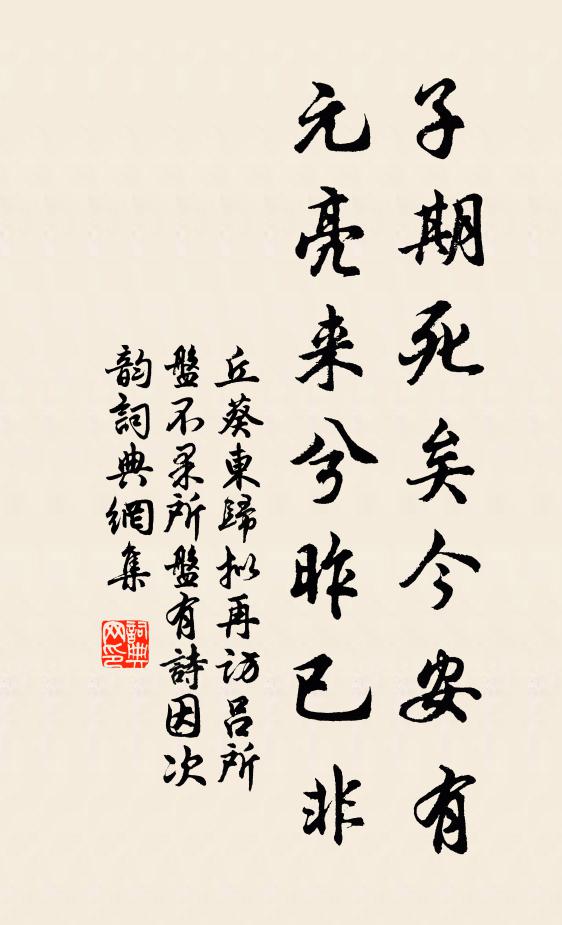 子期死矣今安有
元亮来兮昨已非
丘葵東歸拟再访吕所
盤不果所盤有詩因次
韵詞典網集
詞典
网印